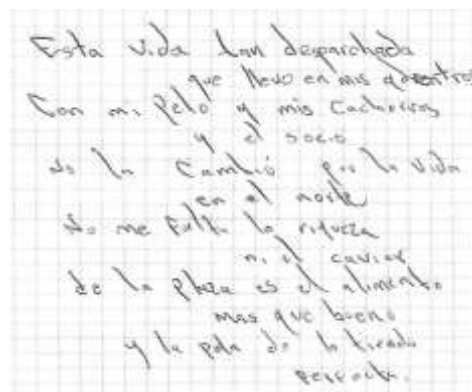 Esta vida tan desparchada
que llevo en mis adentros
Con mi Pelo y mis Cachorros
y el socio
No la Cambió por la vida
en el norte
No me falta la riqueza
ni el caviar
de la plaza es el alimento
mas que bueno
y la pola de la tienda